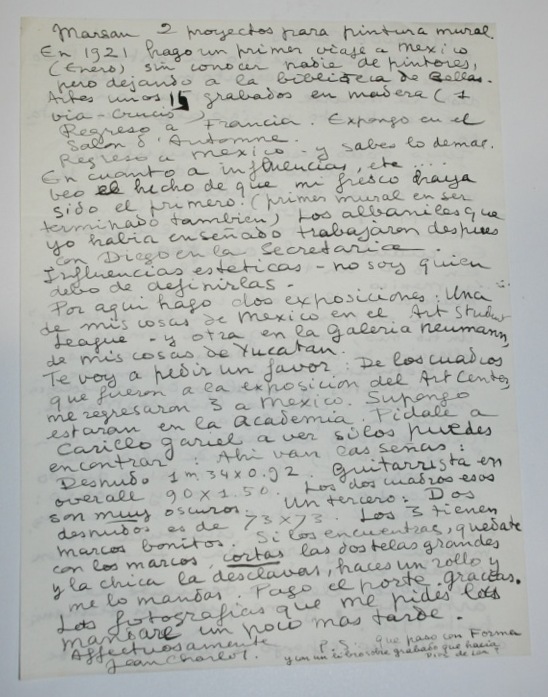 Marsan 2 proyectos para pintura mural
En 1921 hago un primer viaje a Mexico
(Enero) sin conocer nadie de pintores,
pero dejando a la biblioteca de Bellas.
Artes unos 15 grabados en madera (1
via-Crucis)
Regreso a Francia. Expongo en el
Salon d'Automne.
Regreso a Mexico - y sabes lo demas.
En cuanto a influencias, etc ....
veo el hecho de que mi fresco haya
sido el primero. (primer mural en ser
terminado tambien) Los albañiles que
yo habia enseñado trabajaron despues
con Diego en la Secretaria.
Influencias esteticas - no soy quien
debo de definirlas.
Por aqui hago dos exposiciones: Una
de mis cosas de Mexico en el Art Student
League - y otra en la Galeria Neumann,
de mis cosas de Yucatan.
Te voy a pedir un favor: De los cuadros
que fueron a la exposicion del Art Center
me regresaron 3 a Mexico. Supongo
estaran en la Academia. Pidale a
Carillo Gariel a ver si los puedes
encontrar: Ahi van las señas:
Desnudo 1m.34 x 0.92. Guitarrista en
overall 90 x 1.50. Los dos cuadros esos
son muy oscuros. Un tercero: Dos
desnudos es de 73 x 73. Los 3 tienen
marcos bonitos. Si los encuentras, quedate
con los marcos, cortas las dos telas grandes
y la chica la desclavas, haces un rollo y
me lo mandas. Pago el porte. gracias.
Las fotografias que me pides las
mandare un poco mas tarde.
Affectuosamente
Jean Charlot.
P.S. que paso con Forma
y con un libro sobre grabado que hacia